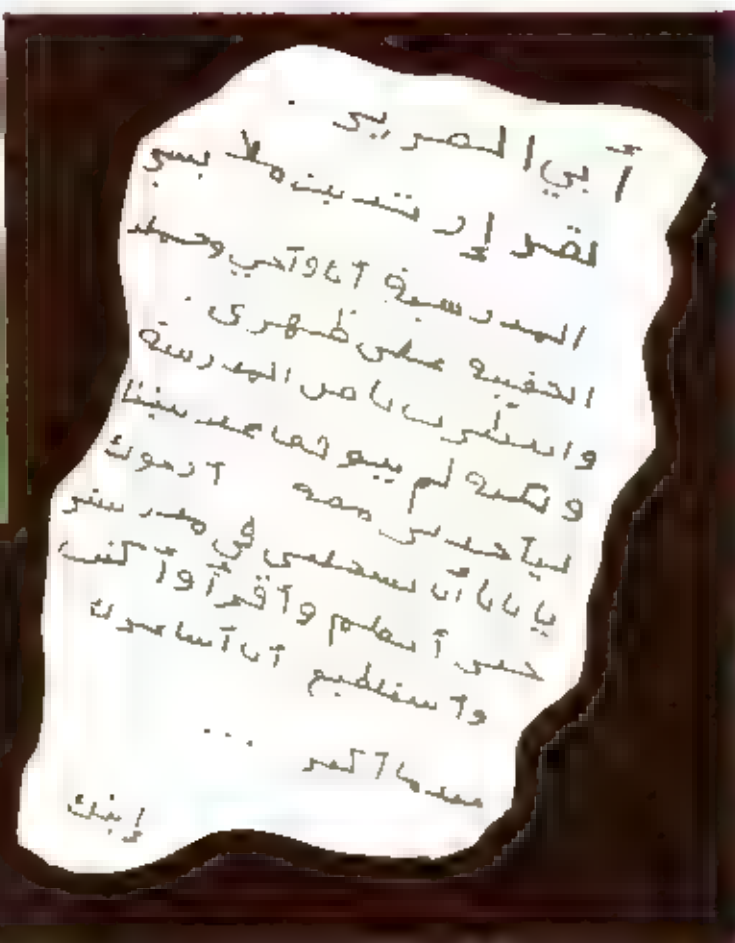 أبي العزيز .
لقد إرتديت ملابسي
المدرسية أنا وأخي وحملت
الحقيبة على ظهري .
المدرسة
ولكنه لم
ليأخذني معه أرجوك
يا بابا أن تسجلني في مدرستي
حتى أتعلم وأقرأ وأكتب
وأستطيع أن أساعدك
عندما أكبر ...
إبنك